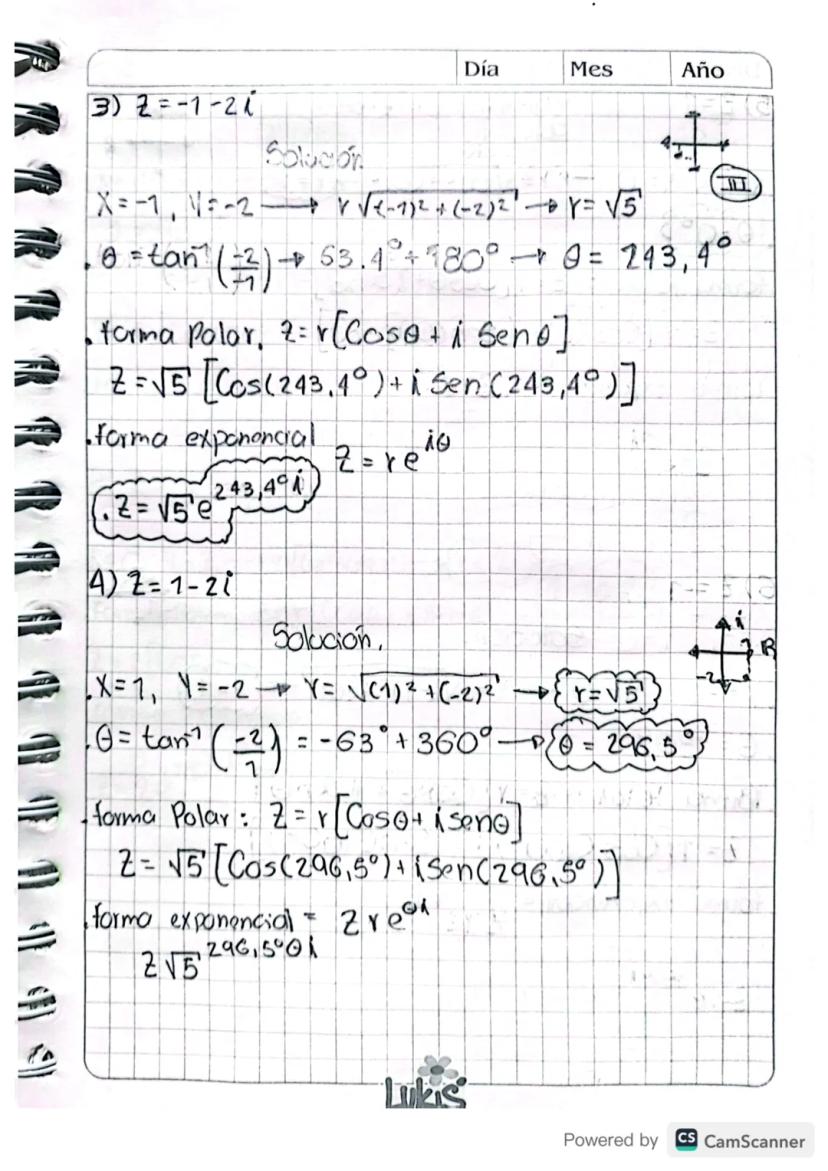 Día Mes Año
3) Z = -1 - 2i
Solución
III
X = -1, Y = -2 → r √(-1)² + (-2)² → r = √5
. θ = tan⁻¹ (-2/-1) → 63.4° + 180° → θ = 243,4°
. forma Polar. Z = r [Cosθ + i Senθ]
Z = √5 [Cos(243,4°) + i Sen(243,4°)]
. forma exponencial Z = re^iθ
. Z = √5 e^243,4° i
4) Z = 1 - 2i
Solución.
i
R
-2
. X = 1, Y = -2 → r = √(1)² + (-2)² → r = √5
. θ = tan⁻¹ (-2/1) = -63° + 360° → θ = 296,5°
. forma Polar: Z = r [Cosθ + i senθ]
Z = √5 [Cos(296,5°) + i Sen(296,5°)]
. forma exponencial = Z r e^θi
Z √5^296,5°θi
Lukis
Powered by CS CamScanner